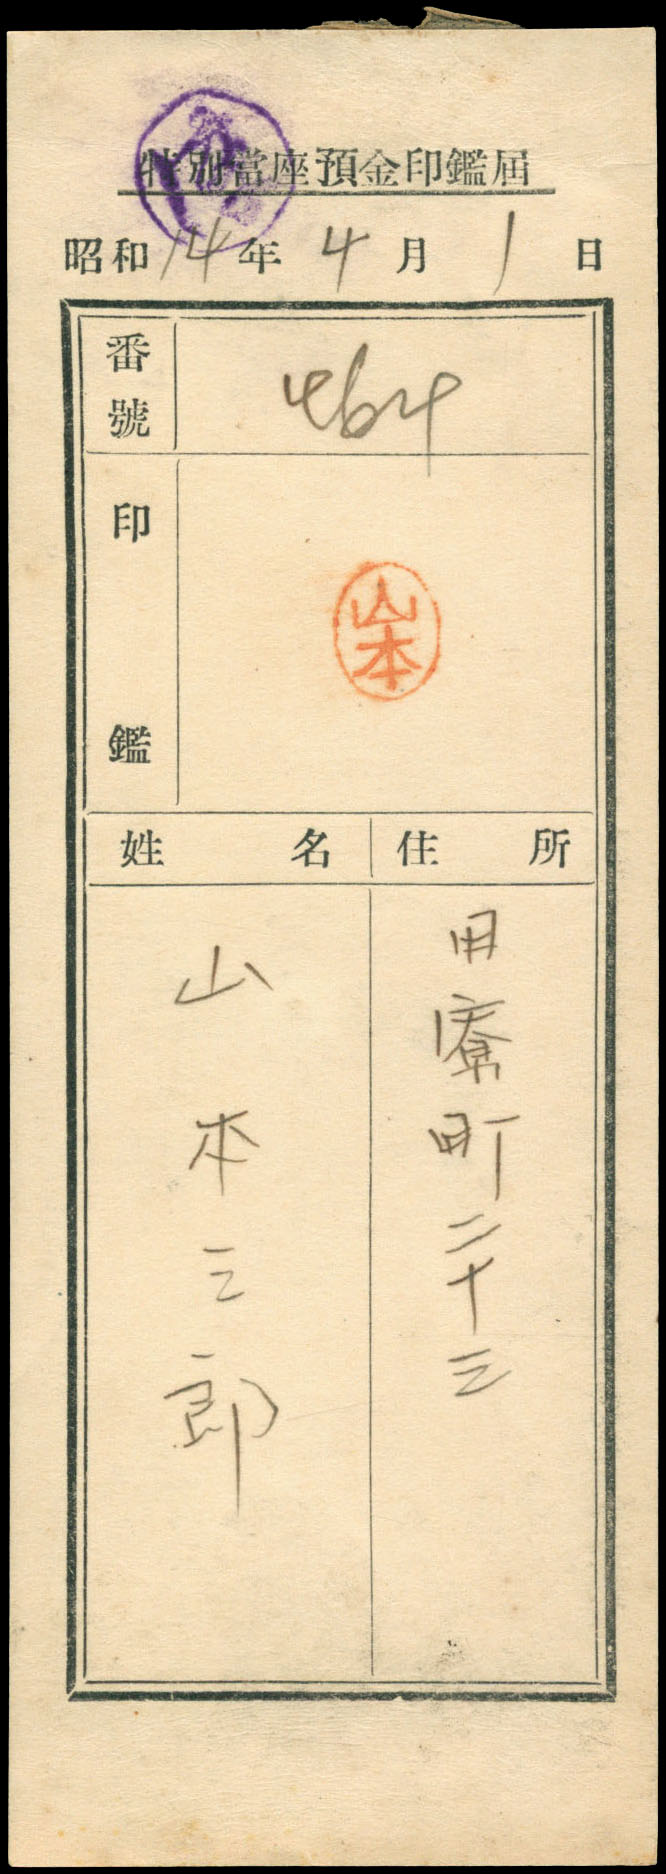 特別當座預金印鑑屆
昭和14年4月1日
番號
464
印鑑
山本
姓名
住所
山本三郎
町二十三